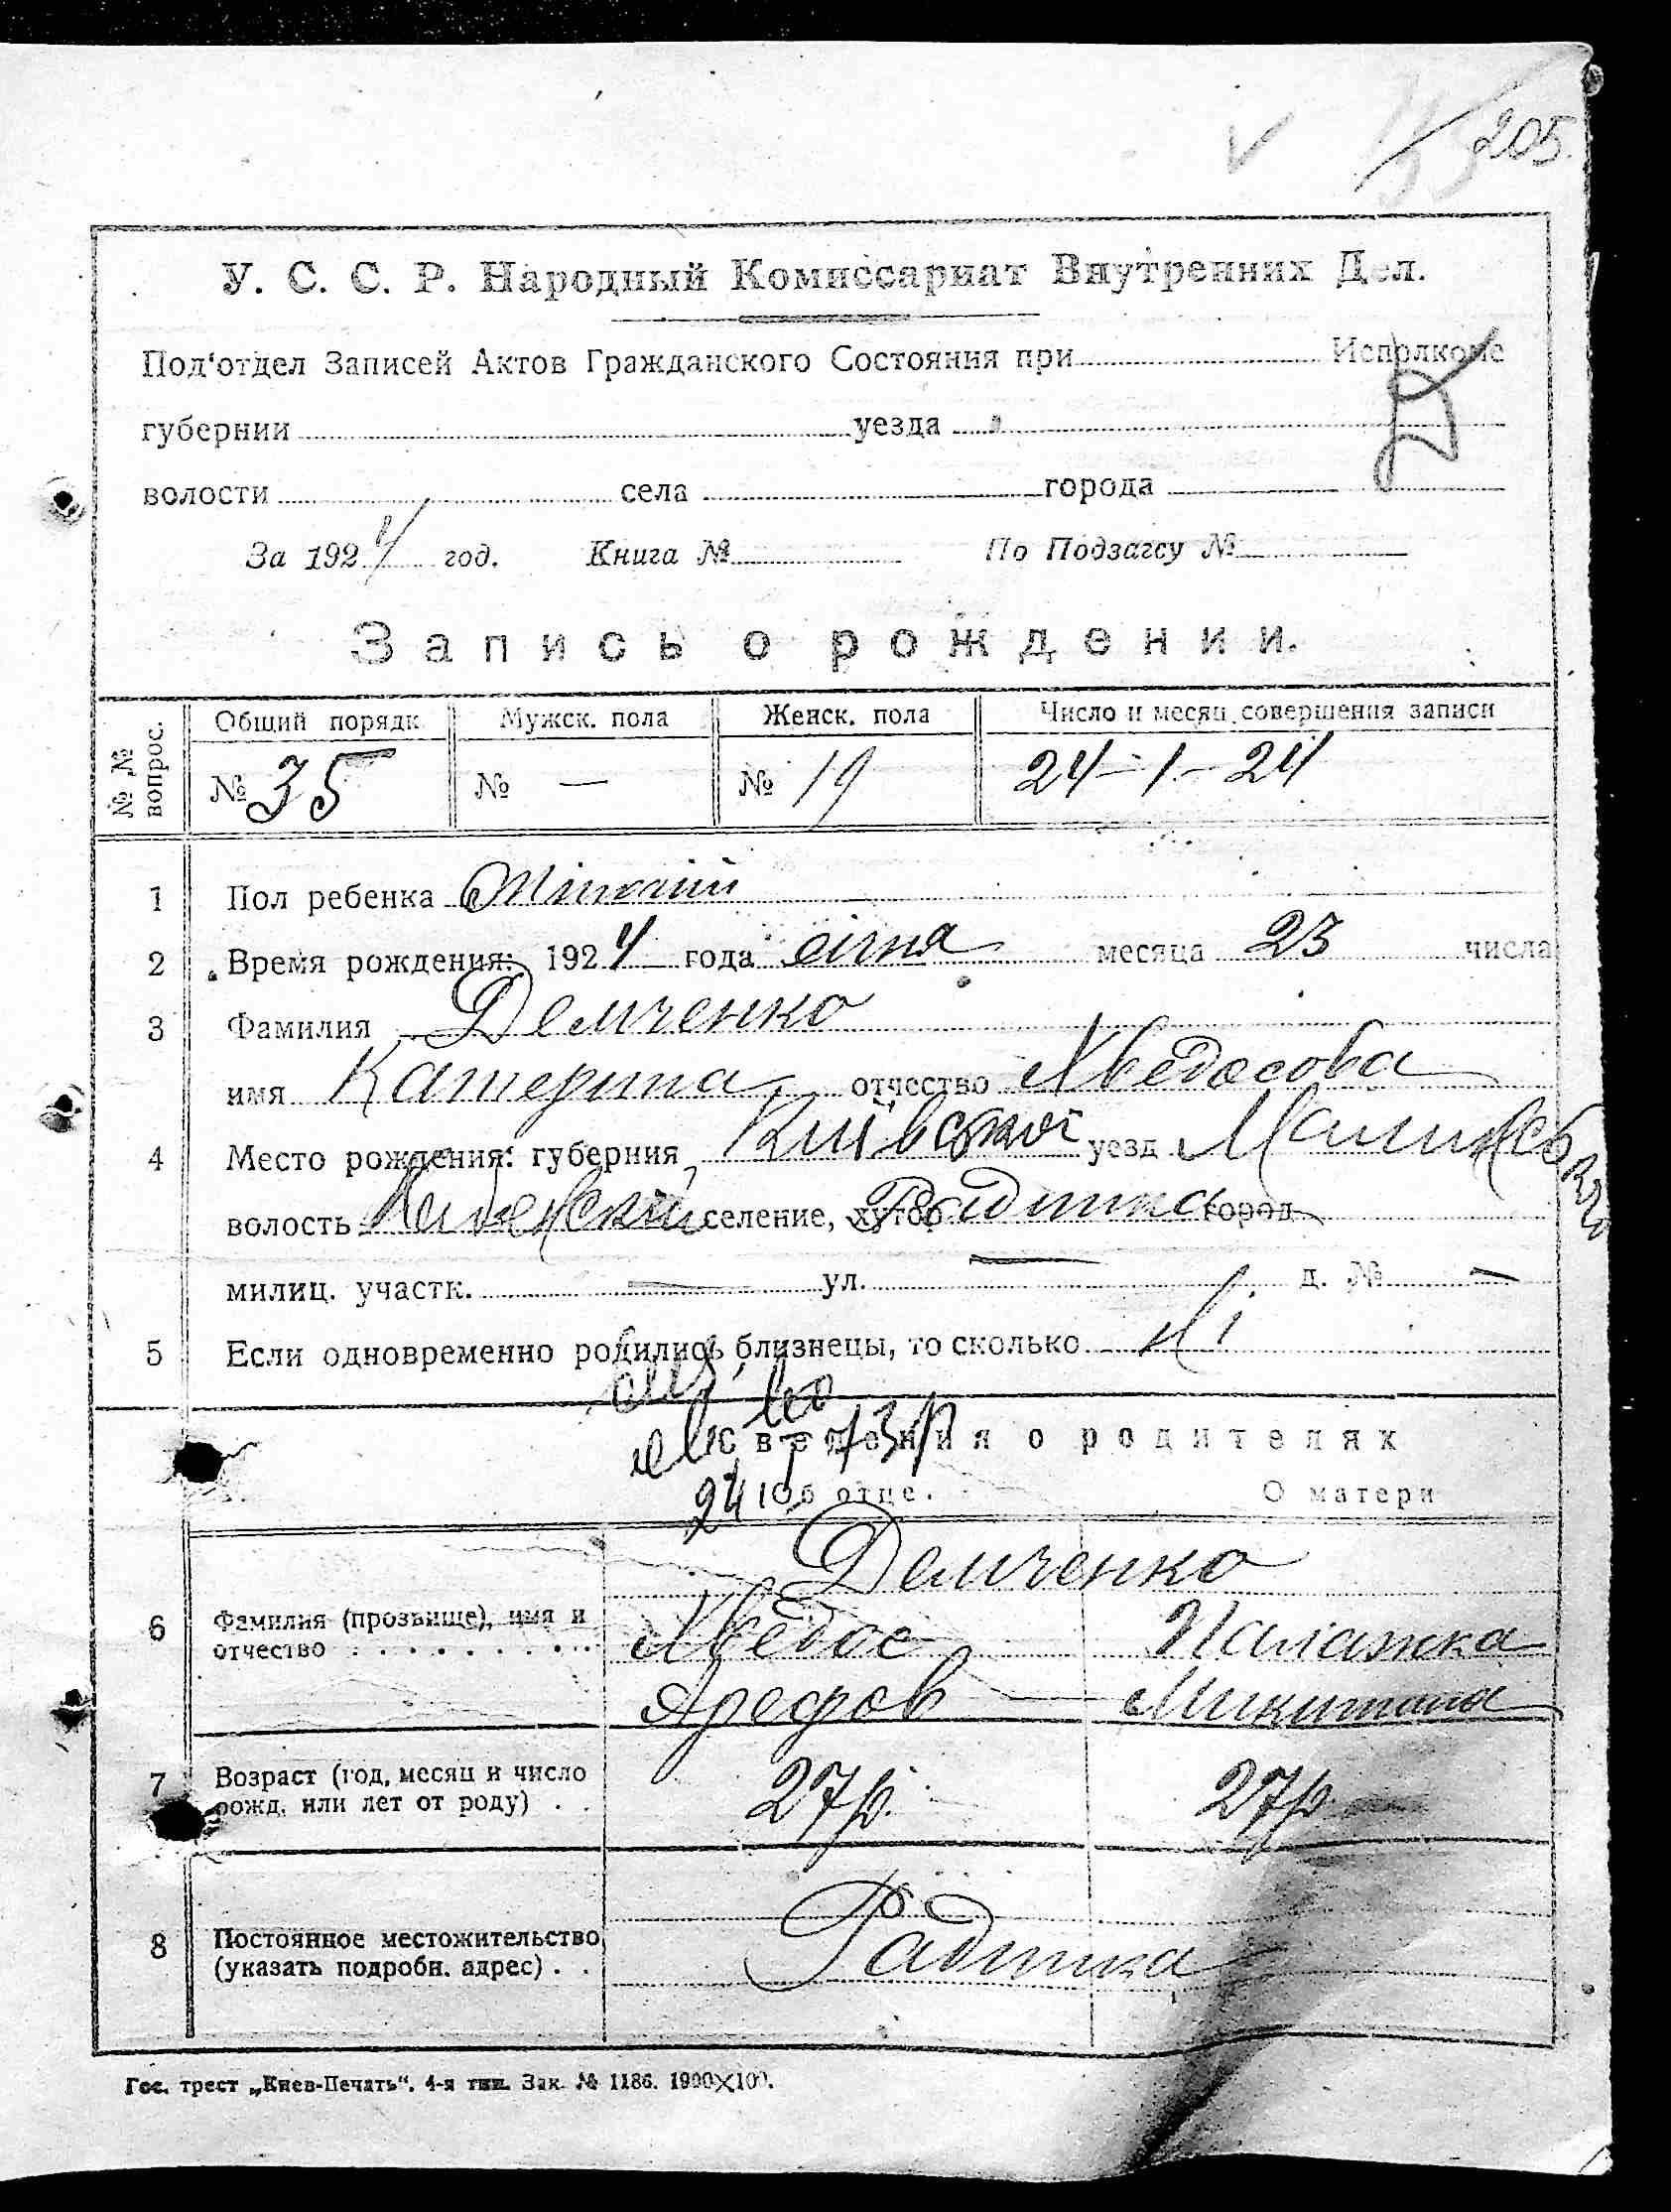 205.
У. С. С. Р. Народный Комиссариат Внутренних Дел.
Под'отдел Записей Актов Гражданского Состояния при Исполкоме
губернии уезда
волости села города
За 1924 год. Книга № По Подзагсу №
Запись о рождении.
№ № вопрос. Общий порядк Мужск. пола Женск. пола Число и месяц совершения записи
№ 35 № — № 19 24-1-24
1 Пол ребенка Жіночий
2 Время рождения: 1924 года січня месяца 23 числа
3 Фамилия Демченко
имя Катерина отчество Хведосова
4 Место рождения: губерния Київської уезд
волость селение, хутор Радинка город
милиц. участк. — ул. — д. № —
5 Если одновременно родились близнецы, то сколько ні
Сведения о родителях
Об отце. О матери
Демченко
6 Фамилия (прозвище), имя и Хведос Палажка
отчество Арефов Микитина
7 Возраст (год, месяц и число 27р. 27р.
рожд. или лет от роду)
8 Постоянное местожительство Радинка
(указать подробн. адрес)
Гос. трест „Киев-Печать“. 4-я тип. Зак. № 1186. 1900×100.